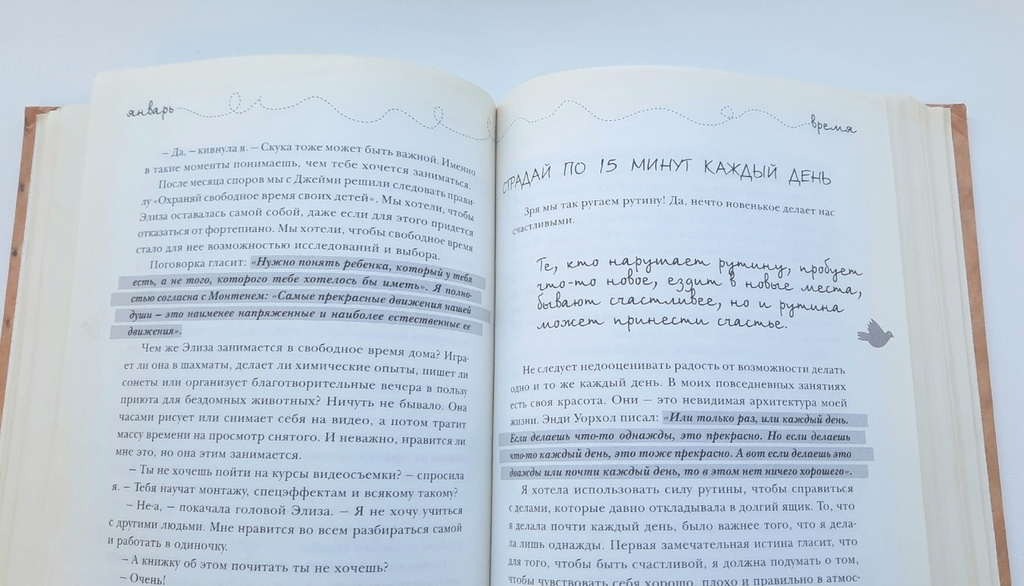 январь
– Да, – кивнула я. – Скука тоже может быть важной. Именно
в такие моменты понимаешь, чем тебе хочется заниматься.
После месяца споров мы с Джейми решили следовать прави-
лу «Охраняй свободное время своих детей». Мы хотели, чтобы
Элиза оставалась самой собой, даже если для этого придется
отказаться от фортепиано. Мы хотели, чтобы свободное время
стало для нее возможностью исследований и выбора.
Поговорка гласит: «Нужно понять ребенка, который у тебя
есть, а не того, которого тебе хотелось бы иметь». Я полно-
стью согласна с Монтенем: «Самые прекрасные движения нашей
души – это наименее напряженные и наиболее естественные ее
движения».
Чем же Элиза занимается в свободное время дома? Игра-
ет ли она в шахматы, делает ли химические опыты, пишет ли
сонеты или организует благотворительные вечера в пользу
приюта для бездомных животных? Ничуть не бывало. Она
часами рисует или снимает себя на видео, а потом тратит
массу времени на просмотр снятого. И неважно, нравится ли
мне это, но она этим занимается.
– Ты не хочешь пойти на курсы видеосъемки? – спросила
я. – Тебя научат монтажу, спецэффектам и всякому такому?
– Не-а, – покачала головой Элиза. – Я не хочу учиться
с другими людьми. Мне нравится во всем разбираться самой
и работать в одиночку.
– А книжку об этом почитать ты не хочешь?
– Очень!
время
СТРАДАЙ ПО 15 МИНУТ КАЖДЫЙ ДЕНЬ
Зря мы так ругаем рутину! Да, нечто новенькое делает нас
счастливыми.
Те, кто нарушает рутину, пробует
что-то новое, ездит в новые места,
бывают счастливее, но и рутина
может принести счастье.
Не следует недооценивать радость от возможности делать
одно и то же каждый день. В моих повседневных занятиях
есть своя красота. Они — это невидимая архитектура моей
жизни. Энди Уорхол писал: «Или только раз, или каждый день.
Если делаешь что-то однажды, это прекрасно. Но если делаешь
что-то каждый день, это тоже прекрасно. А вот если делаешь это
дважды или почти каждый день, то в этом нет ничего хорошего».
Я хотела использовать силу рутины, чтобы справиться
с делами, которые давно откладывала в долгий ящик. То, что
я делала почти каждый день, было важнее того, что я дела-
ла лишь однажды. Первая замечательная истина гласит, что
для того, чтобы быть счастливой, я должна подумать о том,
чтобы чувствовать себя хорошо, плохо и правильно в атмос-